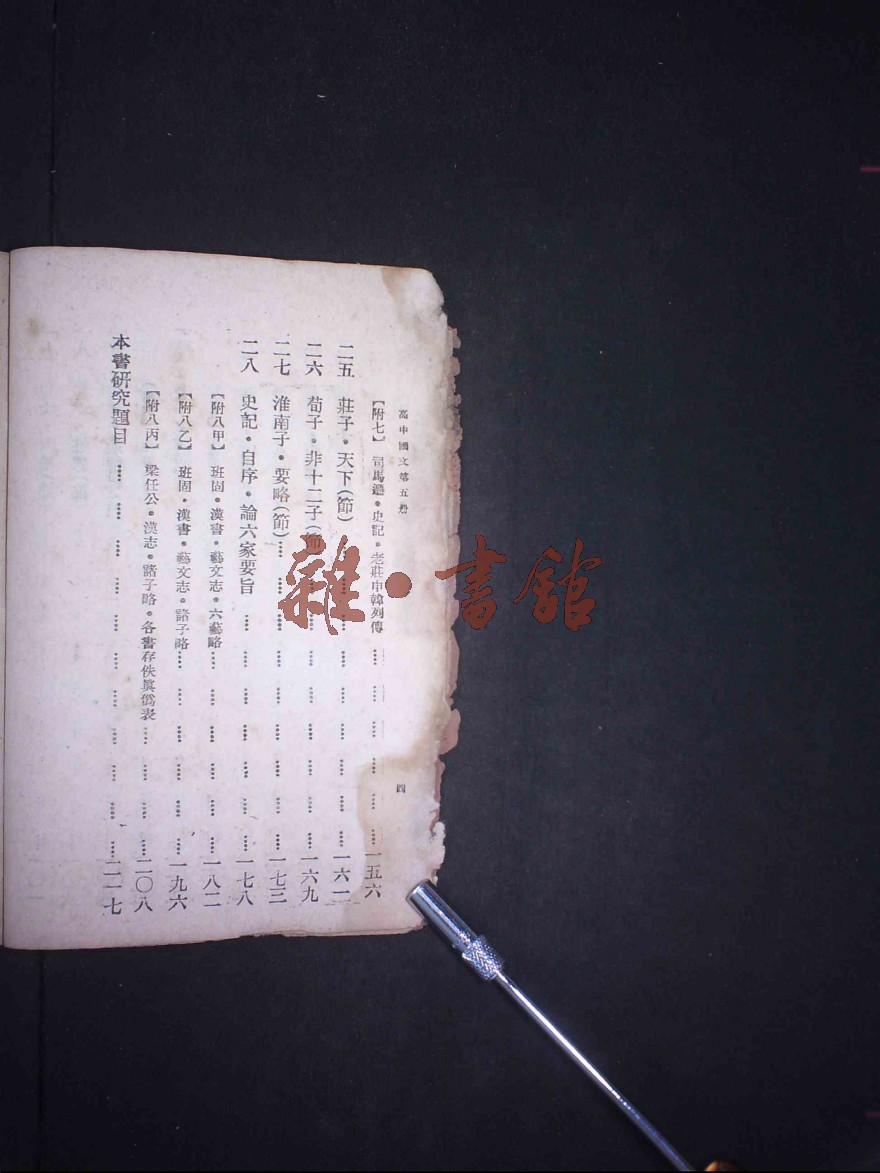 高中國文第五册
四
【附七】 司馬遷•史記•老莊申韓列傳………一五六
二五 莊子•天下(節)………一六一
二六 荀子•非十二子(節)………一六九
二七 淮南子•要略(節)………一七三
二八 史記•自序•論六家要旨………一七八
【附八甲】 班固•漢書•藝文志•六藝略………一八二
【附八乙】 班固•漢書•藝文志•諸子略………一九六
【附八丙】 梁任公•漢志•諸子略•各書存佚眞僞表………二〇八
本書研究題目………二一七
雜•書館